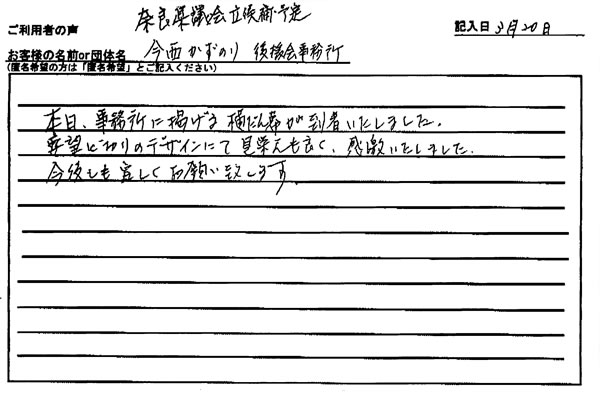 奈良県議会立候補予定
ご利用者の声
記入日 3月20日
お客様の名前or団体名 今西かずのり 後援会事務所
(匿名希望の方は「匿名希望」とご記入ください)
本日、事務所に掲げる横だん幕が到着いたしました。
要望どおりのデザインにて見栄えも良く、感激いたしました。
今後とも宜しくお願い致します。